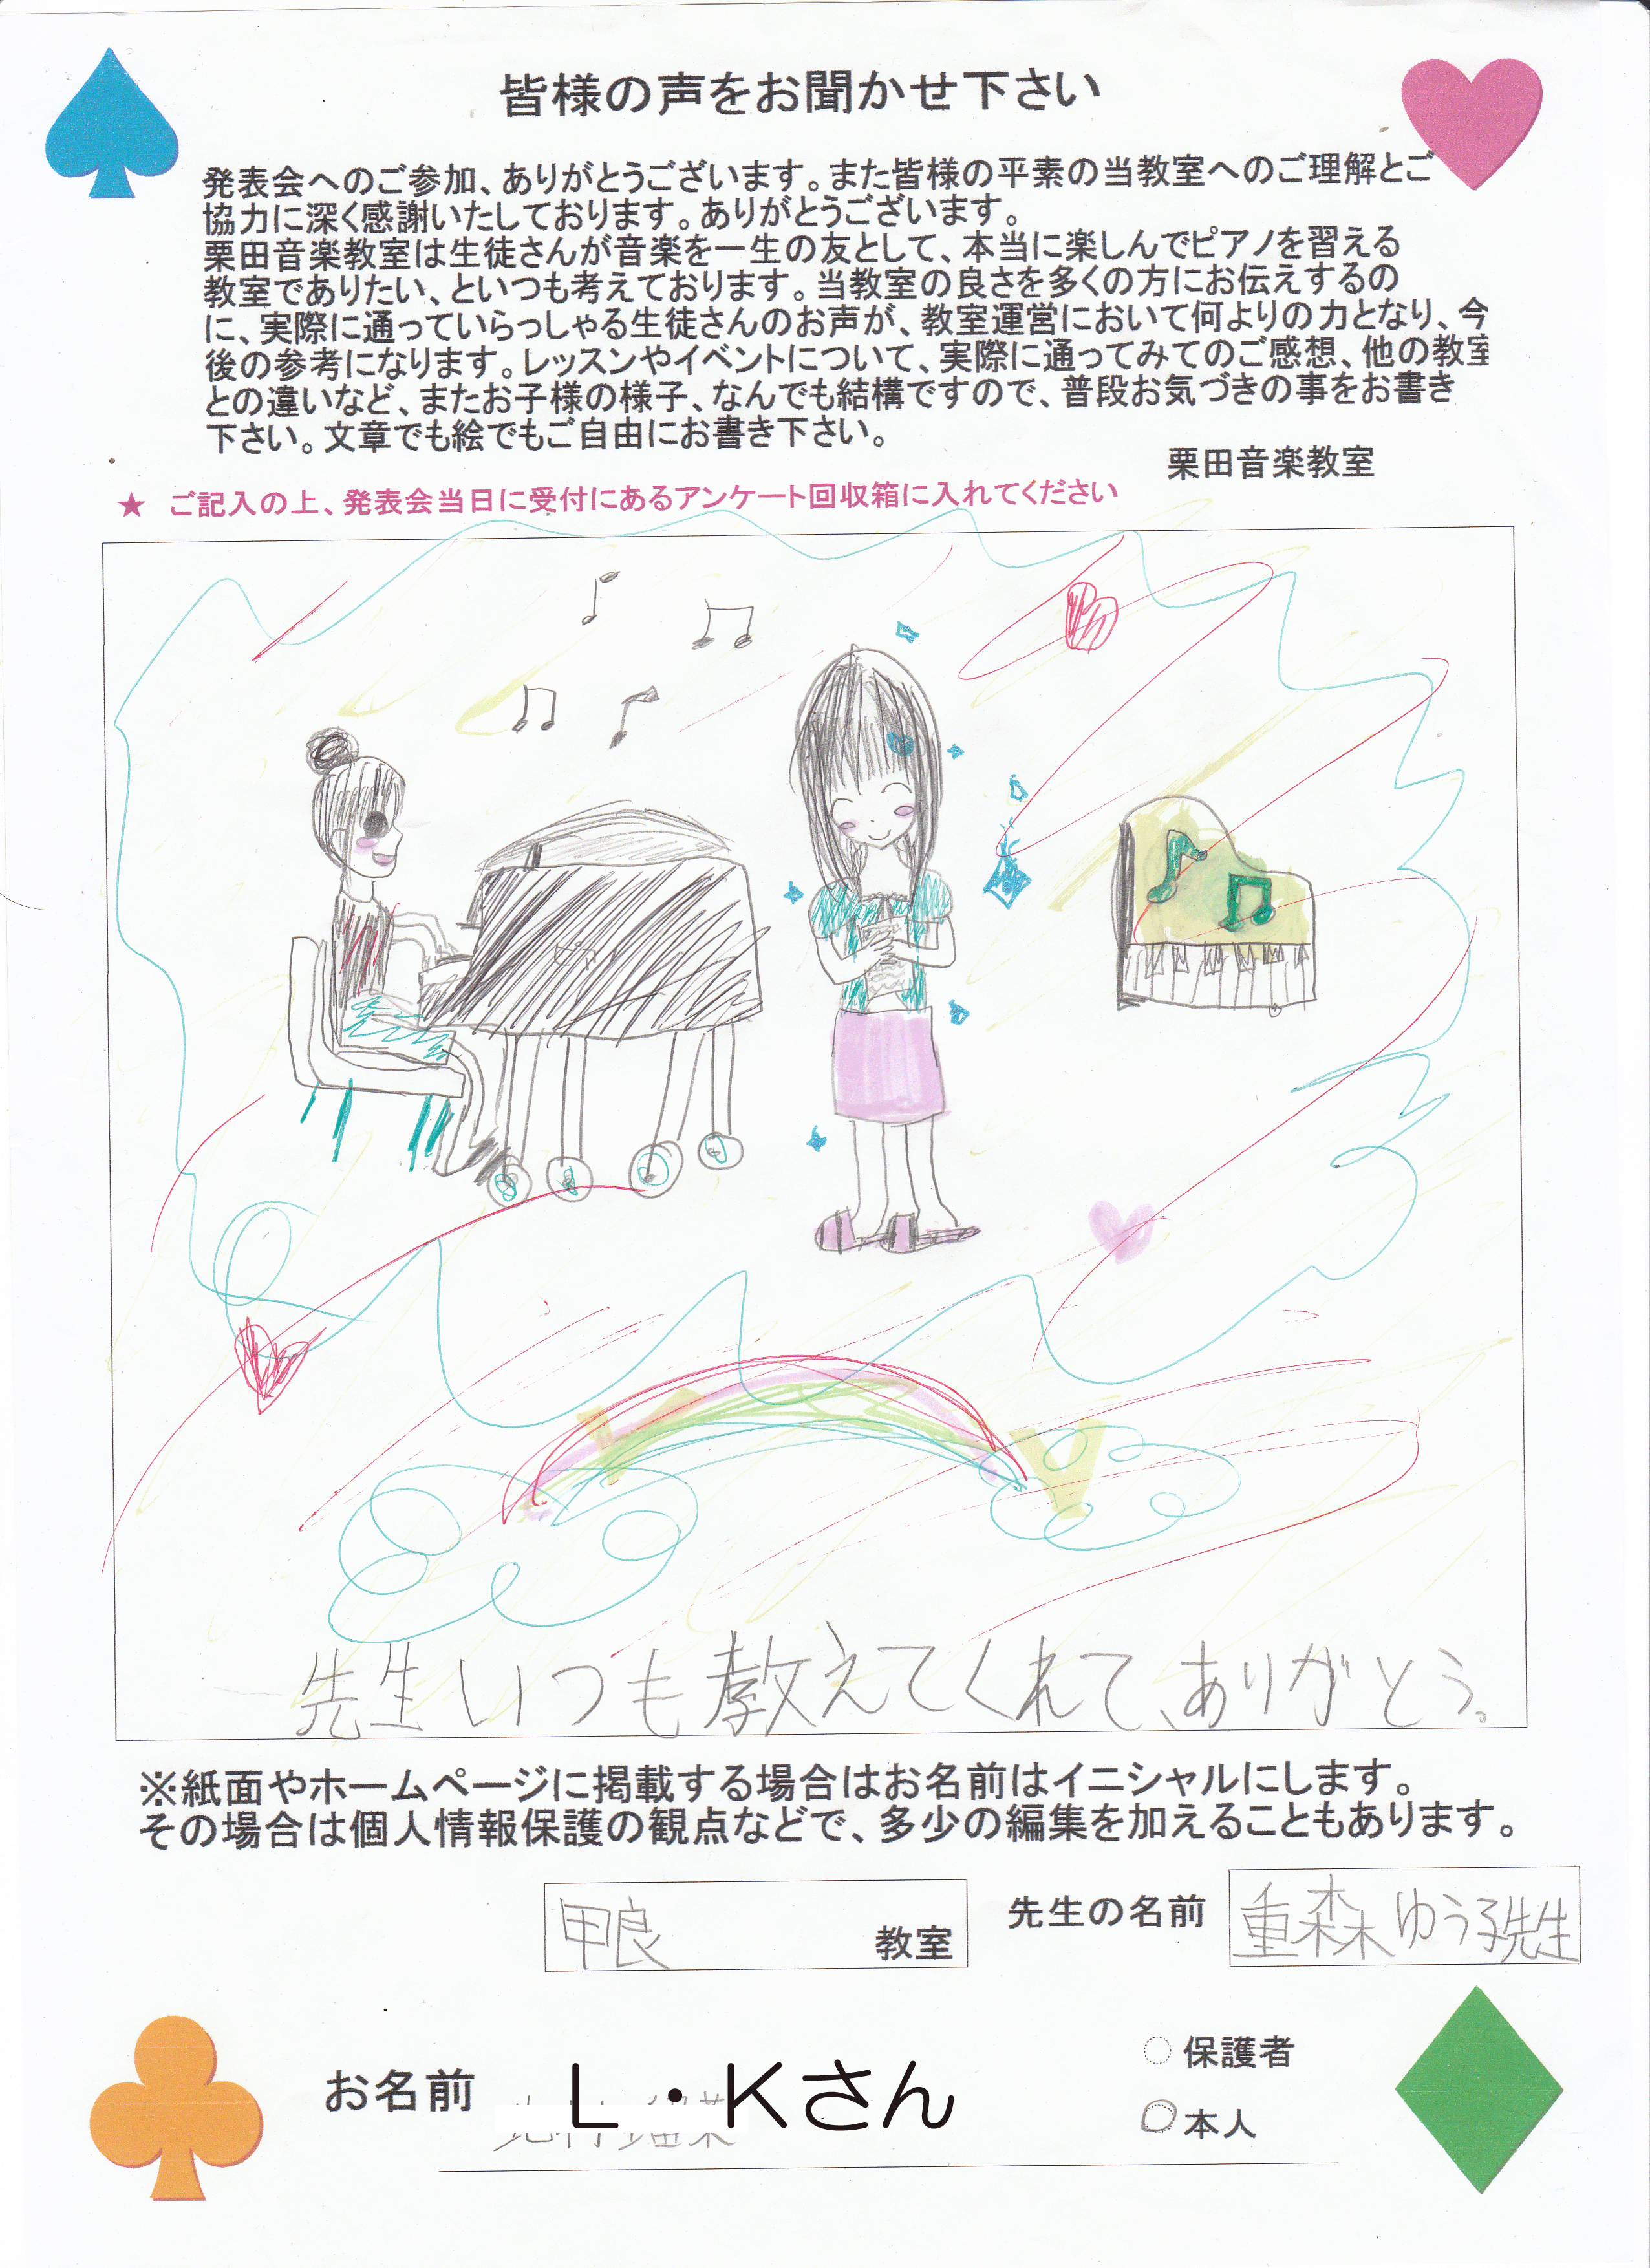 皆様の声をお聞かせ下さい
発表会へのご参加、ありがとうございます。また皆様の平素の当教室へのご理解とご
協力に深く感謝いたしております。ありがとうございます。
栗田音楽教室は生徒さんが音楽を一生の友として、本当に楽しんでピアノを習える
教室でありたい、といつも考えております。当教室の良さを多くの方にお伝えするの
に、実際に通っていらっしゃる生徒さんのお声が、教室運営において何よりの力となり、今
後の参考になります。レッスンやイベントについて、実際に通ってみてのご感想、他の教室
との違いなど、またお子様の様子、なんでも結構ですので、普段お気づきの事をお書き
下さい。文章でも絵でもご自由にお書き下さい。
栗田音楽教室
★ ご記入の上、発表会当日に受付にあるアンケート回収箱に入れてください
先生いつも教えてくれて、ありがとう。
※紙面やホームページに掲載する場合はお名前はイニシャルにします。
その場合は個人情報保護の観点などで、多少の編集を加えることもあります。
甲良 教室 先生の名前 重森ゆう子先生
お名前 L・Kさん
保護者
本人